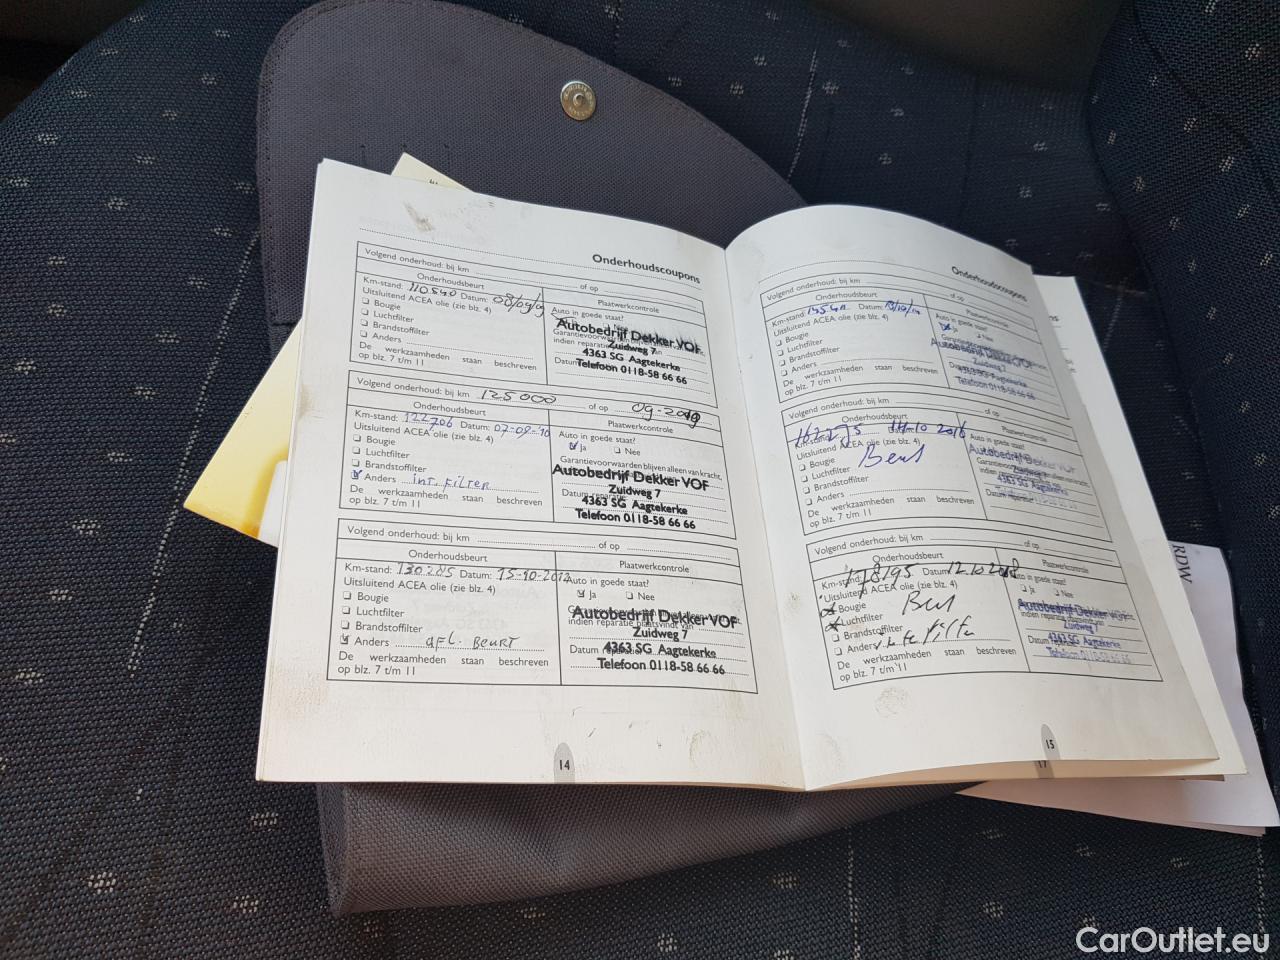 Onderhoudscoupons
Volgend onderhoud: bij km of op
Onderhoudsbeurt Plaatwerkcontrole
Km-stand: 110540 Datum: 08/09/09
Auto in goede staat?
Uitsluitend ACEA olie (zie blz. 4)
Nee
Bougie
Luchtfilter
Brandstoffilter
Anders
De werkzaamheden staan beschreven
op blz. 7 t/m 11
Autobedrijf Dekker VOF
Zuidweg 7
4363 SG Aagtekerke
Telefoon 0118-58 66 66
Volgend onderhoud: bij km 125000 of op 09-2010
Onderhoudsbeurt Plaatwerkcontrole
Km-stand: 122706 Datum: 07-09-'10
Auto in goede staat?
Uitsluitend ACEA olie (zie blz. 4)
Ja Nee
Bougie
Luchtfilter
Brandstoffilter
Anders int. FILTER
De werkzaamheden staan beschreven
op blz. 7 t/m 11
Garantievoorwaarden blijven alleen van kracht,
Autobedrijf Dekker VOF
Zuidweg 7
4363 SG Aagtekerke
Telefoon 0118-58 66 66
Volgend onderhoud: bij km of op
Onderhoudsbeurt Plaatwerkcontrole
Km-stand: 130285 Datum: 15-10-2012
Auto in goede staat?
Uitsluitend ACEA olie (zie blz. 4)
Ja Nee
Bougie
Luchtfilter
Brandstoffilter
Anders afl. BEURT
De werkzaamheden staan beschreven
op blz. 7 t/m 11
indien reparatie plaatsvindt van
Autobedrijf Dekker VOF
Zuidweg 7
4363 SG Aagtekerke
Telefoon 0118-58 66 66
14
Onderhoudscoupons
Volgend onderhoud: bij km of op
Onderhoudsbeurt Plaatwerkcontrole
Km-stand: Datum:
Auto in goede staat?
Uitsluitend ACEA olie (zie blz. 4)
Ja Nee
Bougie
Luchtfilter
Brandstoffilter
Anders
De werkzaamheden staan beschreven
op blz. 7 t/m 11
Autobedrijf Dekker VOF
Zuidweg 7
4363 SG Aagtekerke
Telefoon 0118-58 66 66
Volgend onderhoud: bij km of op
Onderhoudsbeurt Plaatwerkcontrole
Km-stand: Datum: 14.10 2016
Auto in goede staat?
Uitsluitend ACEA olie (zie blz. 4)
Ja Nee
Bougie
Luchtfilter
Brandstoffilter
Anders
De werkzaamheden staan beschreven
op blz. 7 t/m 11
Autobedrijf Dekker VOF
Zuidweg 7
4363 SG Aagtekerke
Volgend onderhoud: bij km of op
Onderhoudsbeurt Plaatwerkcontrole
Km-stand: 178195 Datum: 12.10 2018
Auto in goede staat?
Uitsluitend ACEA olie (zie blz. 4)
Ja Nee
Bougie
Luchtfilter
Brandstoffilter
Anders
De werkzaamheden staan beschreven
op blz. 7 t/m 11
Autobedrijf Dekker VOF
Zuidweg 7
4363 SG Aagtekerke
Telefoon 0118-58 66 66
15
17
RDW
CarOutlet.eu